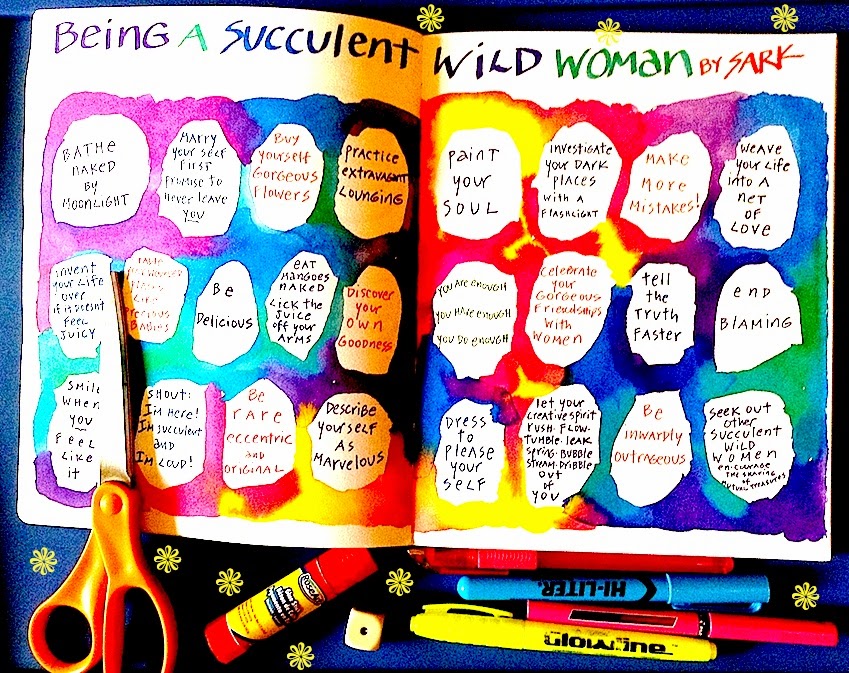 BEING A SUCCULENT WILD WOMAN BY SARK
BATHE
NAKED
BY
MOONLIGHT
MARRY
your SELF
FIRST
Promise to
Never leave
you
Buy
yourself
Gorgeous
Flowers
Practice
extravagant
Lounging
Paint
your
SOUL
investigate
your DARK
PLACES
with a
FLASHLIGHT
MAKE
More
Mistakes!
weave
your Life
into A
Net
OF
LOVE
invent
your Life
over
if it doesn't
feel
Juicy
Like
Precious
Babies
Be
Delicious
eat
Mangoes
naked
Lick the
Juice
off your
ARMS
Discover
your
own
Goodness
you are enough
you have enough
you do enough
Celebrate
your
Gorgeous
Friendships
with
women
tell
the
truth
faster
end
Blaming
Smile
when
you
feel
like
it
Shout:
I'm Here!
I'm succulent
and
I'm Loud!
Be
rare
eccentric
and
original
Describe
yourself
As
Marvelous
Dress
to
please
your
self
let your
creative spirit
rush. flow.
tumble. leak
spring. bubble
stream. dribble
out
of
you
Be
inwardly
outrageous
Seek out
other
succulent
wild
women
encourage
the sharing
of
mutual treasures
Glue Stick
HI-LITER